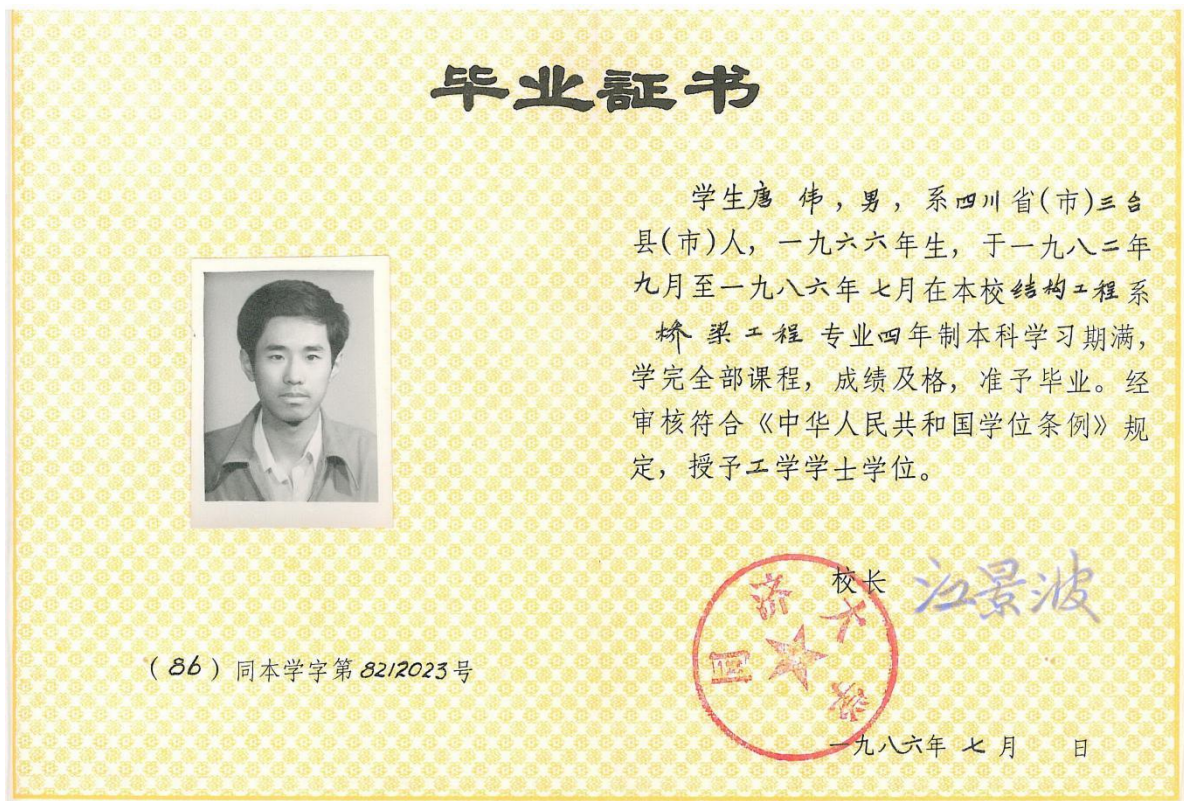 毕业証书
学生唐 伟，男，系四川省(市)三台
县(市)人，一九六六年生，于一九八二年
九月至一九八六年七月在本校结构工程系
桥梁工程 专业四年制本科学习期满，
学完全部课程，成绩及格，准予毕业。经
审核符合《中华人民共和国学位条例》规
定，授予工学学士学位。
校长 江景波
同济大学
(86)同本学字第8212023号
一九八六年七月 日